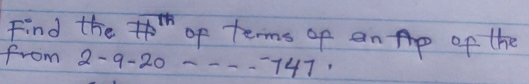 Find the #th of terms of an Ap of the
from 2-9-20 - - - - - 747.